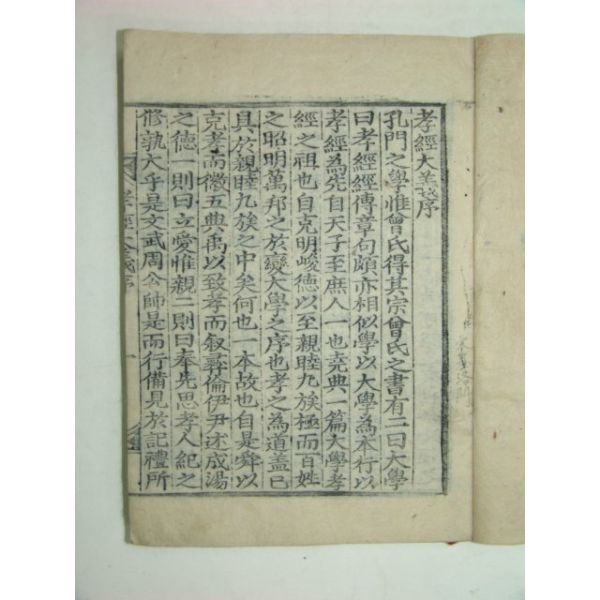 孝經大義序
孔門之學惟曾氏得其宗曾氏之書有二曰大學
曰孝經經傳章句頗亦相似學以大學爲本行以
孝經爲先自天子至庶人一也堯典一篇大學孝
經之祖也自克明峻德以至親睦九族極而百姓
之昭明萬邦之於變大學之序也孝之爲道蓋已
具於親睦九族之中矣何也一本故也自是舜以
克孝而徽五典禹以致孝而叙彛倫伊尹述成湯
之德一則曰立愛惟親二則曰奉先思孝人紀之
修孰大乎是文武周公師是而行備見於記禮所
孝經大義序
一